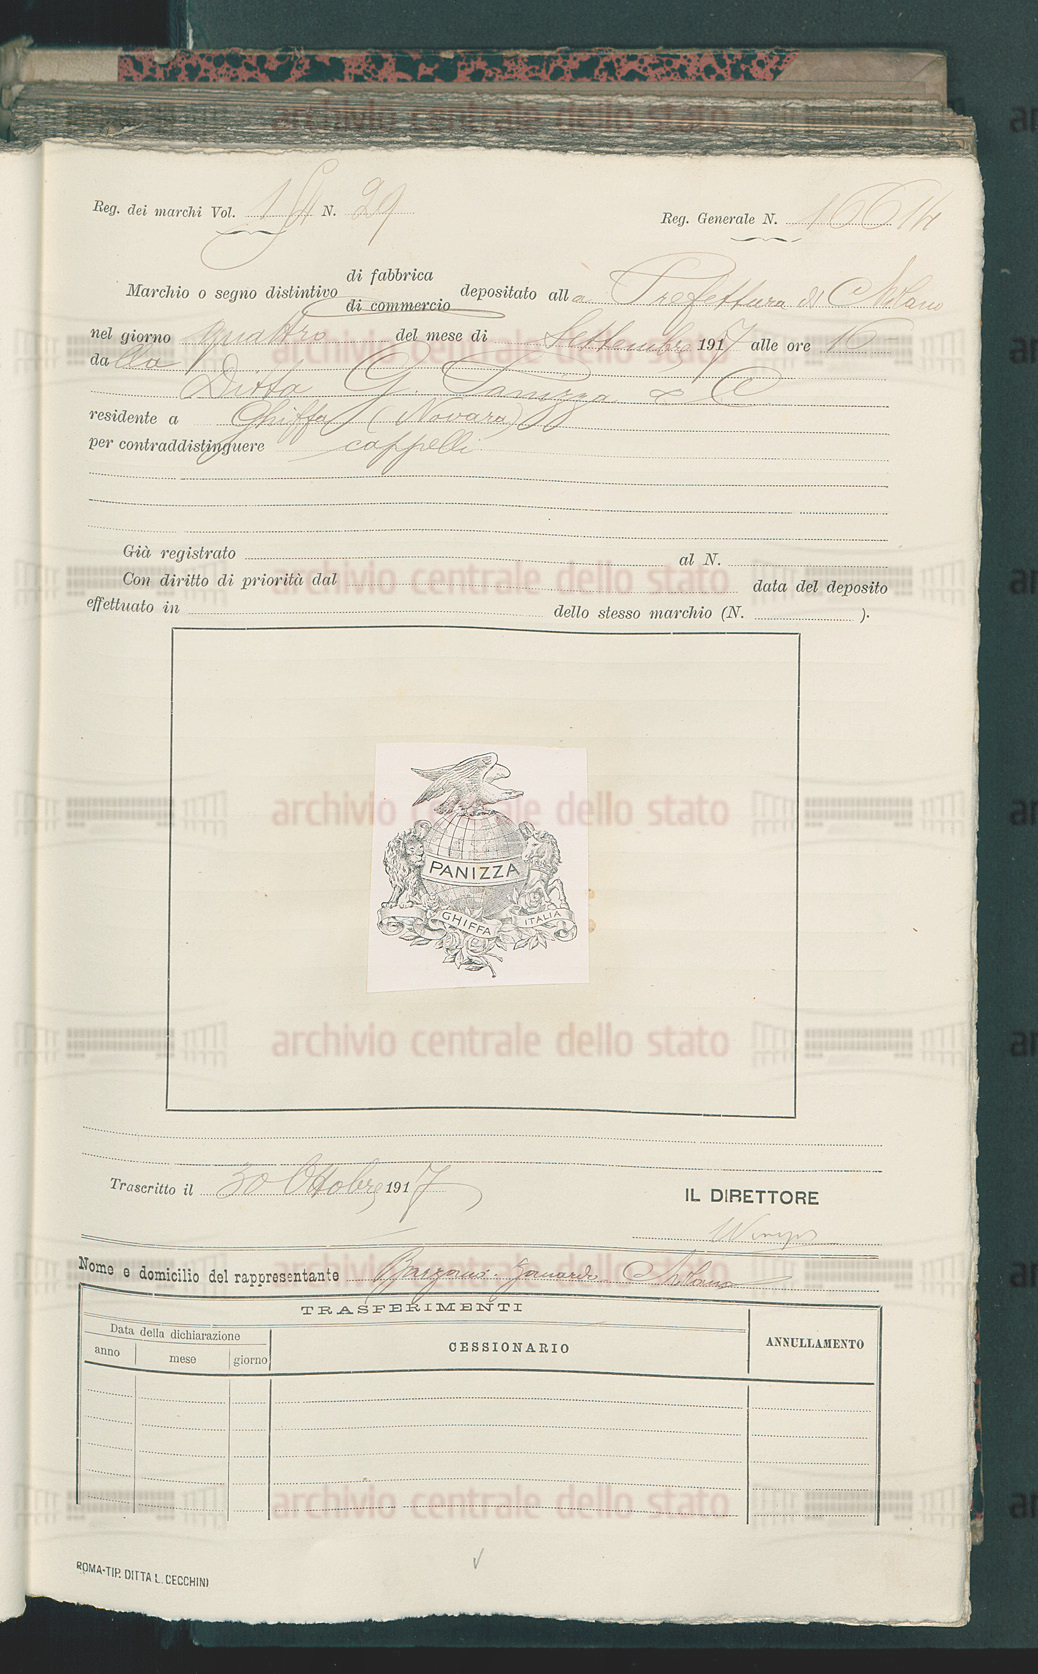 Reg. dei marchi Vol. N. 29
Reg. Generale N. 16614
Marchio o segno distintivo di fabbrica di commercio depositato alla Prefettura di Milano
nel giorno quattro del mese di Settembre 1917 alle ore 16
da lla
Ditta G. Panizza & C
residente a Ghiffa (Novara)
per contraddistinguere cappelli
Già registrato al N.
Con diritto di priorità dal data del deposito
effettuato in dello stesso marchio (N. ).
PANIZZA
GHIFFA
ITALIA
Trascritto il 30 Ottobre 1917
IL DIRETTORE
Nome e domicilio del rappresentante Barzanò Zanardo Milano
TRASFERIMENTI
Data della dichiarazione
anno mese giorno
CESSIONARIO
ANNULLAMENTO
ROMA-TIP. DITTA L. CECCHINI
archivio centrale dello stato
archivio centrale dello stato
archivio centrale dello stato
archivio centrale dello stato
archivio centrale dello stato
archivio centrale dello stato
archivio centrale dello stato